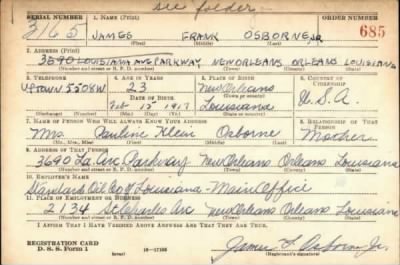 see folder
SERIAL NUMBER 1. NAME (Print) ORDER NUMBER
3165 JAMES FRANK OSBORNE, JR. 685
(First) (Middle) (Last)
2. ADDRESS (Print)
3690 LOUISIANA AVE PARKWAY NEW ORLEANS ORLEANS LOUISIANA
(Number and street or R. F. D. number) (Town) (County) (State)
3. TELEPHONE 4. AGE IN YEARS 5. PLACE OF BIRTH 6. COUNTRY OF CITIZENSHIP
UPTOWN 5508W 23 New Orleans
DATE OF BIRTH (Town or county)
Feb 12 1917 Louisiana U.S.A.
(Mo.) (Day) (Yr.) (State or country)
7. NAME OF PERSON WHO WILL ALWAYS KNOW YOUR ADDRESS 8. RELATIONSHIP OF THAT PERSON
Mrs. Pauline Klein Osborne Mother
(Mr., Mrs., Miss) (First) (Middle) (Last)
9. ADDRESS OF THAT PERSON
3690 La. Ave Parkway New Orleans, Orleans, Louisiana
(Number and street or R. F. D. number) (Town) (County) (State)
10. EMPLOYER'S NAME
Standard Oil Co of Louisiana - Main Office
11. PLACE OF EMPLOYMENT OR BUSINESS
2134 St Charles Ave New Orleans Orleans Louisiana
(Number and street or R. F. D. number) (Town) (County) (State)
I AFFIRM THAT I HAVE VERIFIED ABOVE ANSWERS AND THAT THEY ARE TRUE.
REGISTRATION CARD
D. S. S. Form 1 (over) 16-17105 James F Osborne Jr.
(Registrant's signature)